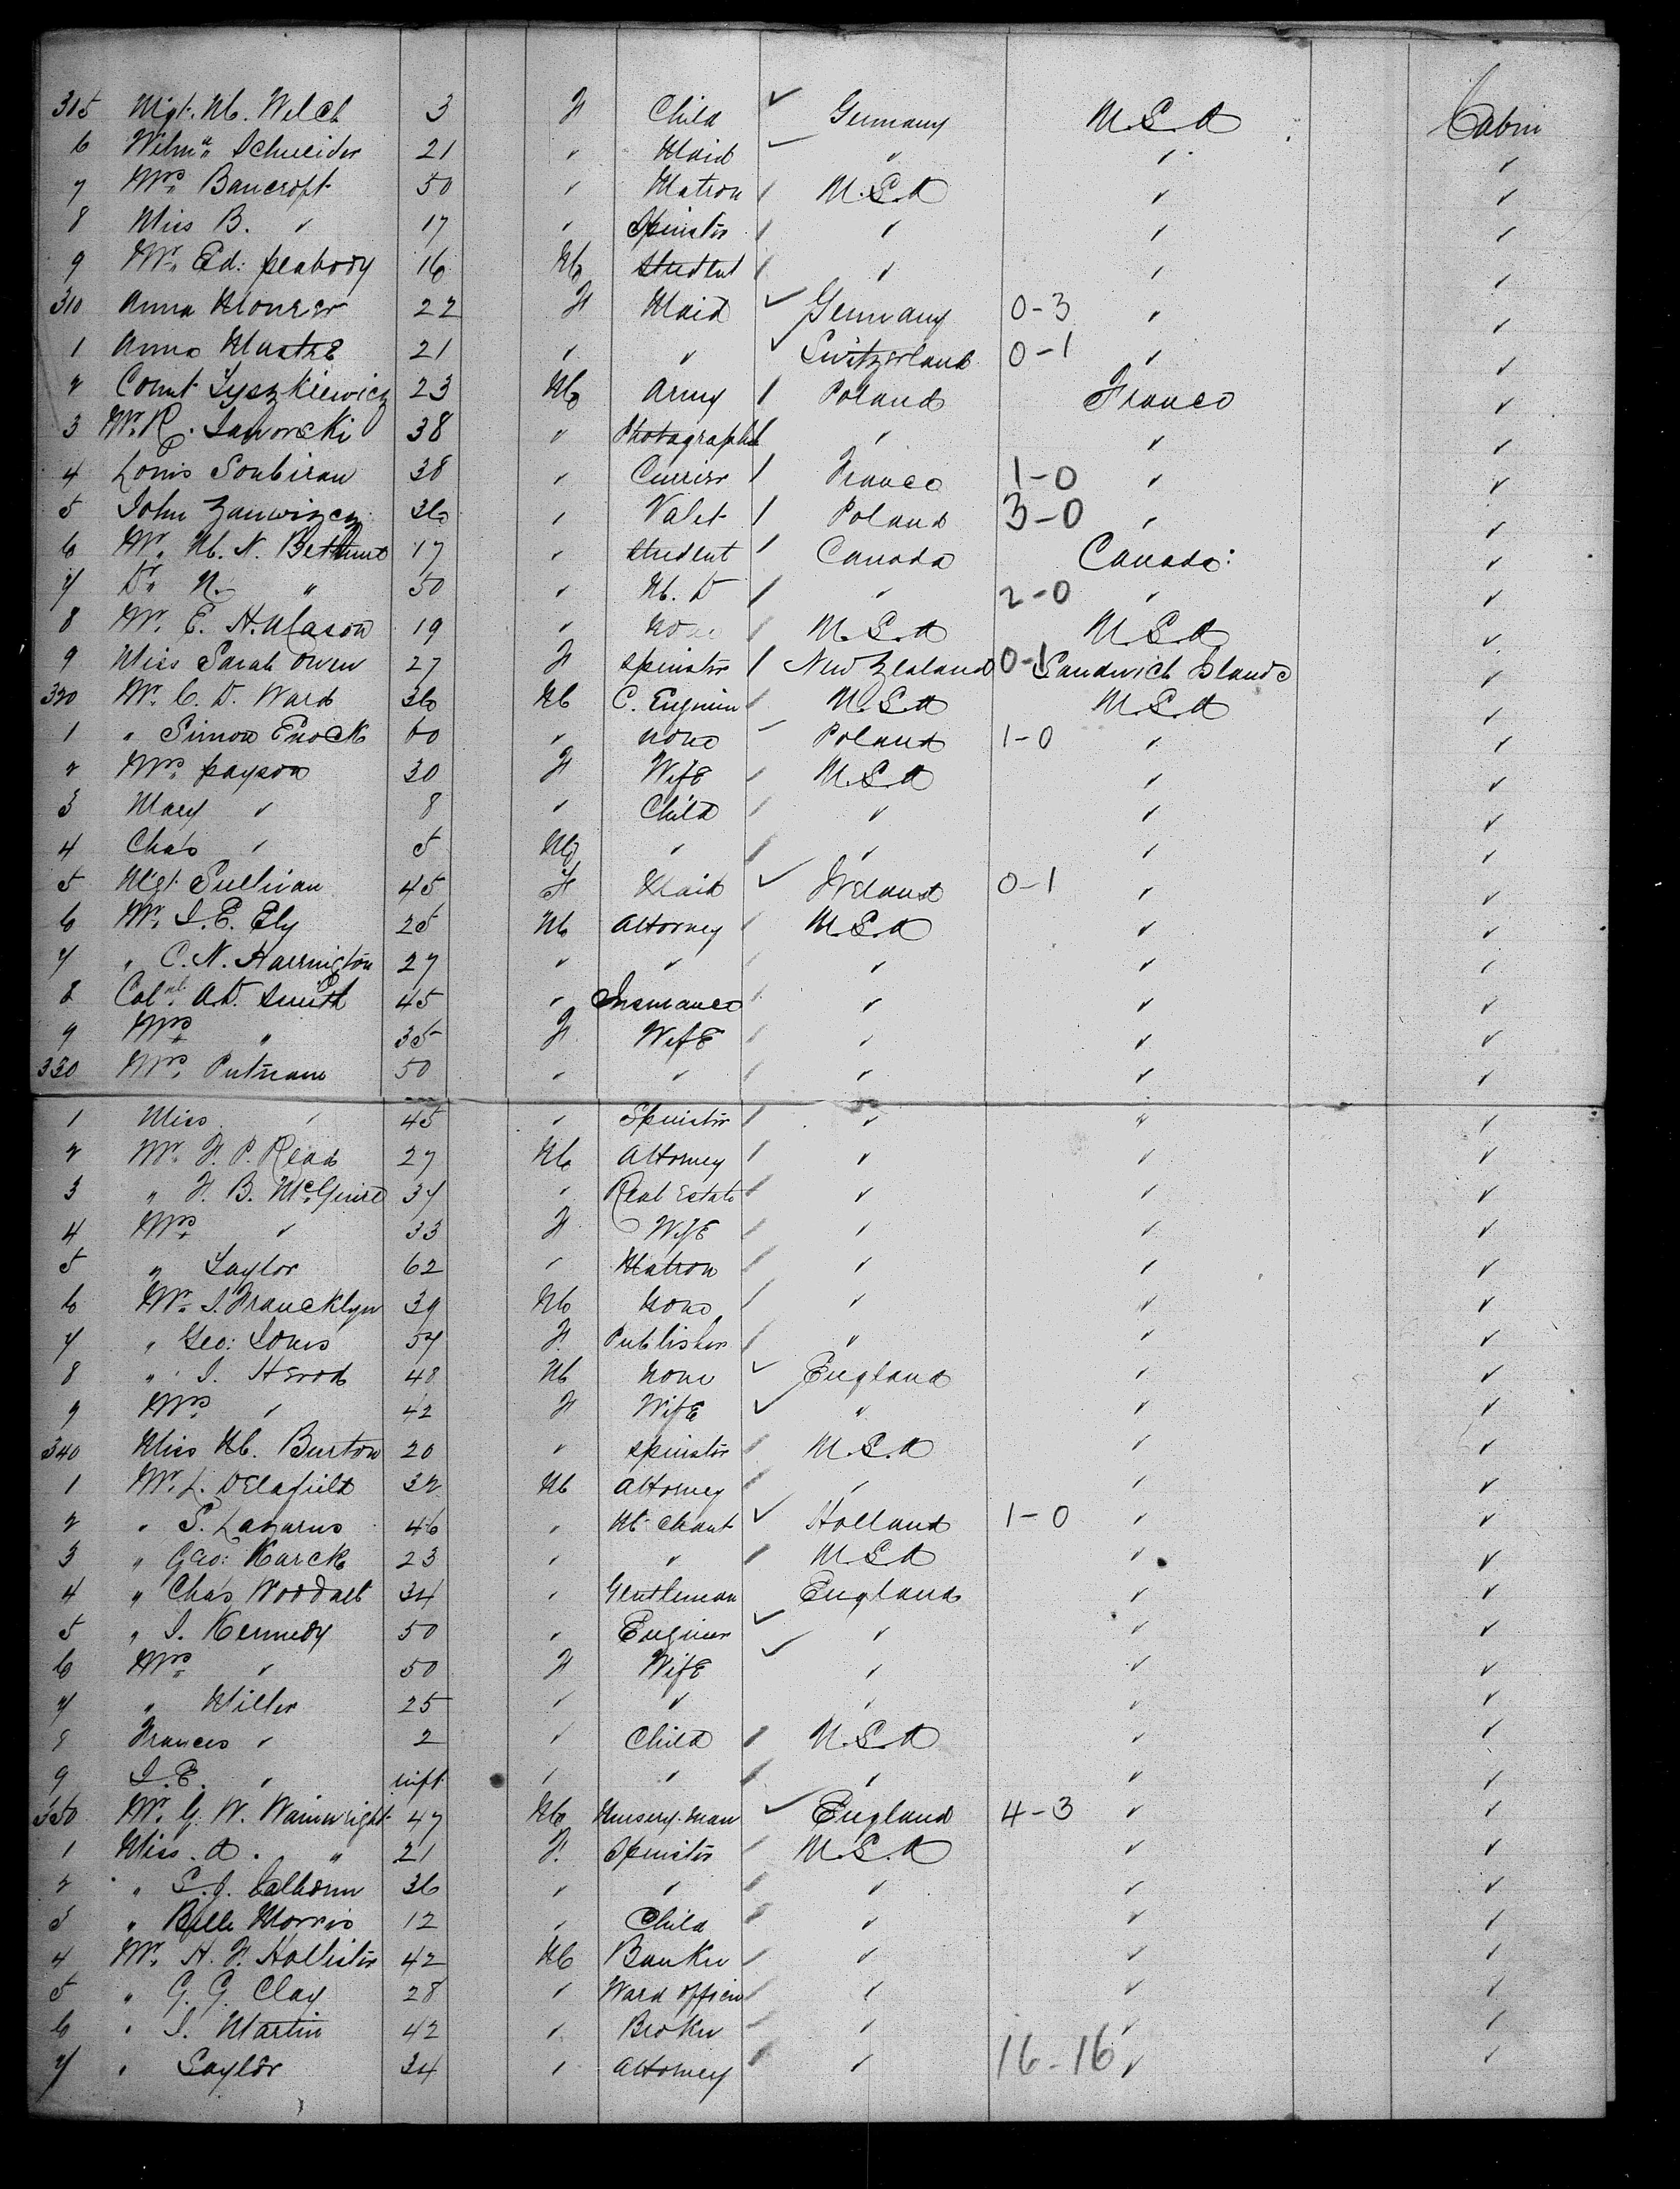 305 Mgt. M. Welch 3 F Child ✓ Germany U.S.A Cabin
6 Wilmᵃ Schneider 21 " Maid " "
7 Mrs Bancroft 50 " Matron / U.S.A " "
8 Miss B. " 17 " Spinster / " " "
9 Mr. Ed: peabody 16 M Student / " " "
310 Anna 22 F Maid ✓ Germany 0-3 " "
1 Anna 21 " " ✓ Switzerland 0-1 " "
2 Count Tyszkiewicz 23 M Army / Poland France "
3 Mr. R. Jaworski 38 " Photographer / " " "
4 Louis Soubiran 38 " Currier / France 1-0 " "
5 John 36 " Valet / Poland 3-0 " "
6 Mr. M. N. Bethune 17 " Student / Canada Canada: "
7 Dr. N. " 50 " M. D / " 2-0 " "
8 Mr. E. H. Mason 19 " None / U.S.A U.S.A "
9 Miss Sarah Owen 27 F Spinster / New Zealand 0-1 Sandwich Islands "
320 Mr. C. D. Ward 36 M C. Engineer / U.S.A U.S.A "
1 " Simon Enock 60 " None Poland 1-0 " "
2 Mrs payson 30 F Wife / U.S.A " "
3 Mary " 8 " Child / " " "
4 Chas " 5 M " / " " "
5 Mgt Sullivan 45 F Maid ✓ Ireland 0-1 " "
6 Mr. J. E. Ely 25 M Attorney / U.S.A " "
7 " C. N. Harrington 27 " " / " " "
8 Colnl. A.D. Smith 45 " Insurance / " " "
9 Mrs " 35 F Wife / " " "
330 Mrs. Putnam 50 " " / " " "
1 Miss " 45 " Spinster / " " "
2 Mr. F. P. Read 27 M Attorney / " " "
3 " F. B. McGuire 37 " Real Estate / " " "
4 Mrs " 33 F Wife / " " "
5 " Taylor 62 " Matron / " " "
6 Mr. J. Francklyn 39 M None / " " "
7 " Geo: Jones 57 F. Publisher / " " "
8 " J. Herod 48 M None ✓ England " "
9 Mrs " 42 F Wife ✓ " " "
340 Miss M. Burton 20 " Spinster / U.S.A " "
1 Mr. L. Delafield 32 M Attorney / " " "
2 " S. Lazarus 46 " Mᵗchant ✓ Holland 1-0 " "
3 " Geo: Karck 23 " " / U.S.A " "
4 " Chas 34 " Gentleman England " "
5 " J. Kennedy 50 " Engineer ✓ " " "
6 Mrs " 50 F Wife ✓ " " "
7 " Miller 25 " " " " "
8 Frances " 2 " Child / U.S.A " "
9 J.E. " inft " " / " " "
350 Mr. G. W. Wainwright 47 M Nursery-man ✓ England 4-3 " "
1 Miss. A. " 21 F. Spinster / U.S.A " "
2 " S. J. Calhoun 36 " " / " " "
3 " Belle Morris 12 " Child / " " "
4 Mr. H. F. Hollister 42 M Banker / " " "
5 " G. G. Clay 28 " Ward officer / " " "
6 " J. Martin 42 " Broker / " " "
7 " Saylor 34 " Attorney / " 16-16 " "